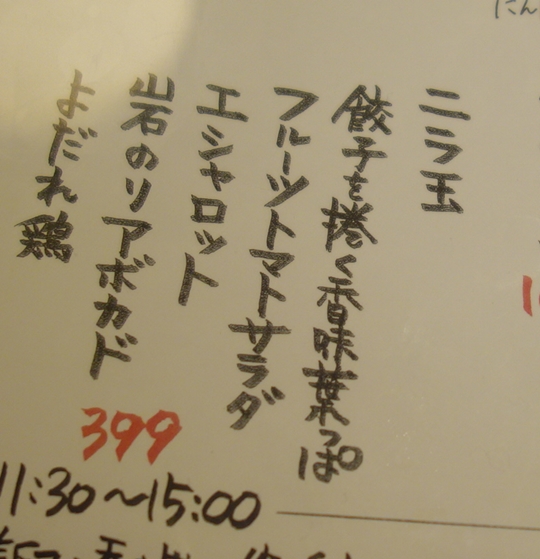 にん
ニラ玉
餃子を捲く香味葉っぱ
フルーツトマトサラダ
エシャロット
岩石のリアボカド
よだれ鶏
399
11:30〜15:00